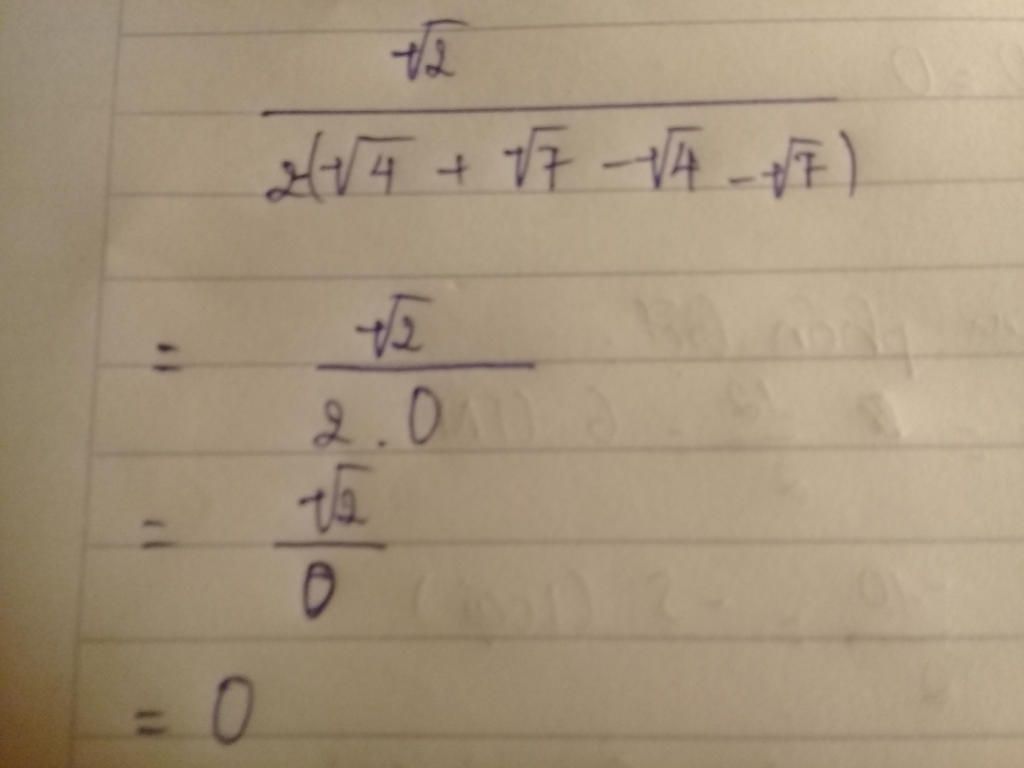 √2
2(√4 + √7 - √4 - √7)
= √2
2 . 0
= √2
0
= 0